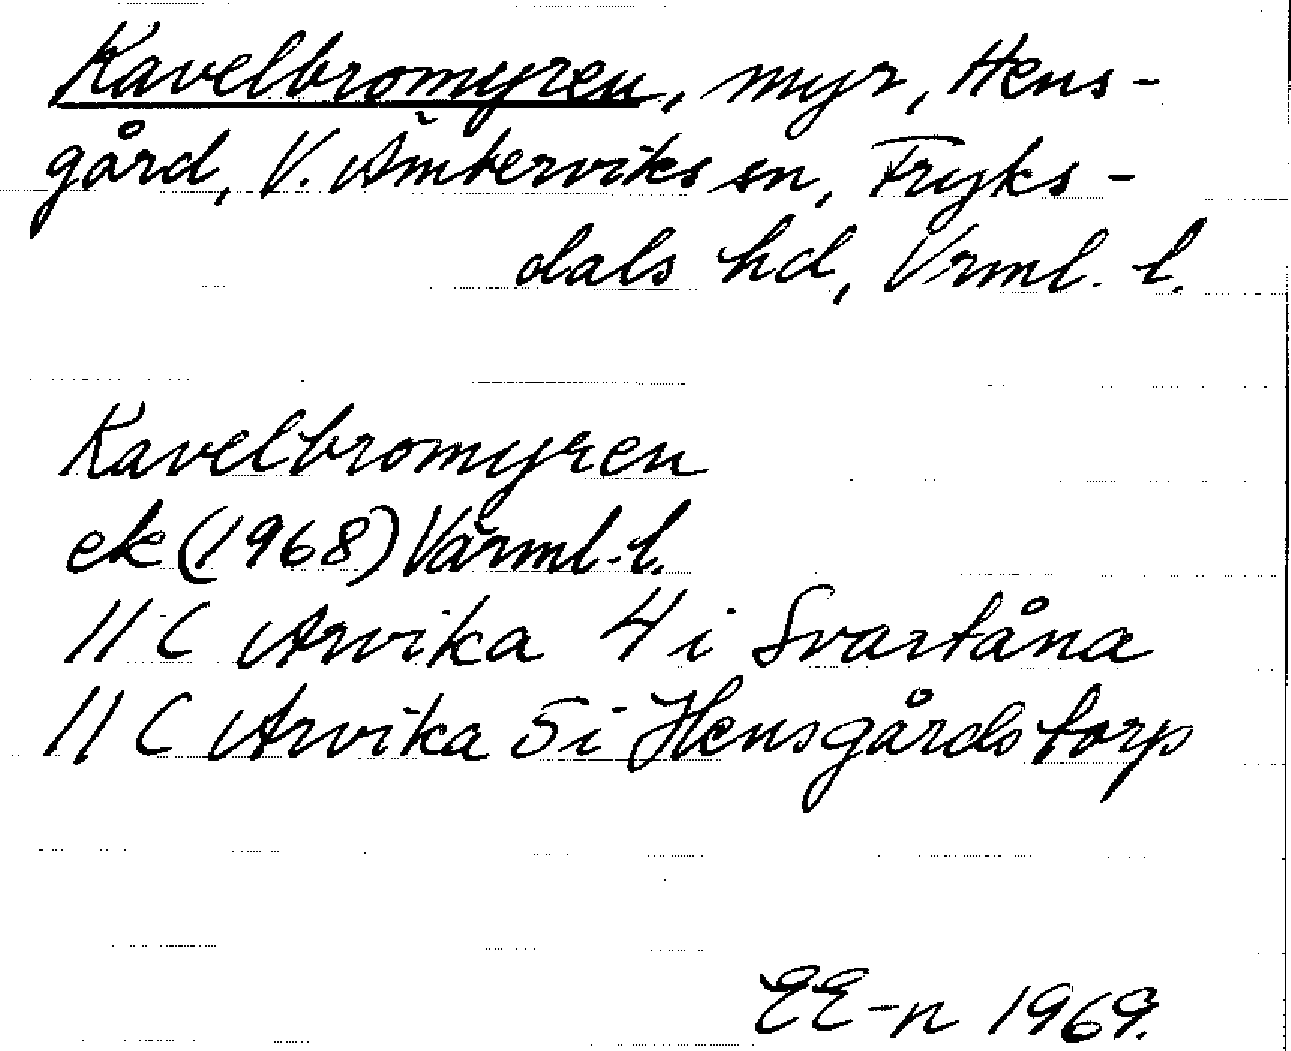 Kavelbromyren, myr, Hens-
gård, V. Ämterviks sn, Fryks-
dals hd, Vrml. l.
Kavelbromyren
ek (1968) Värml. l.
11 C Arvika 4 i Svartåna
11 C Arvika 5 i Hensgårdstorp
EE-n 1969.